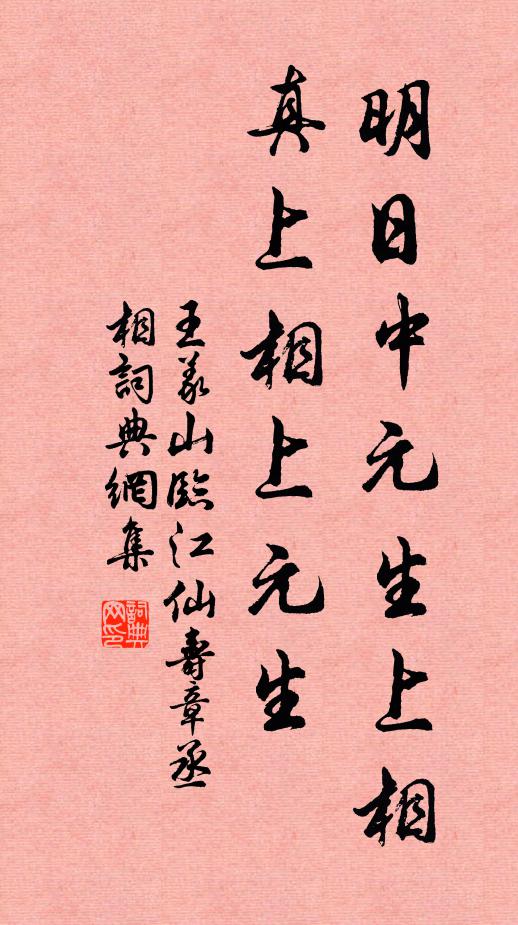 明日中元生上相
真上相上元生
王义山臨江仙壽章丞
相詞典網集
詞典
网印